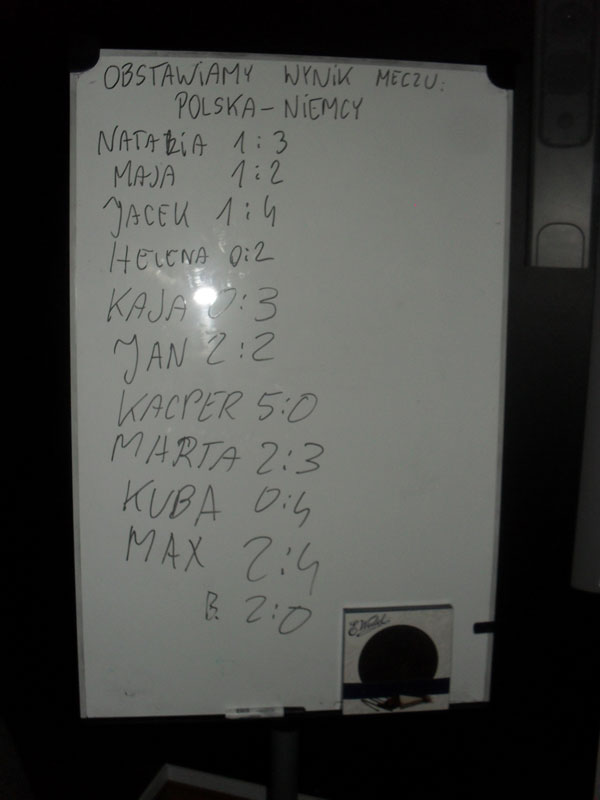 OBSTAWIAMY WYNIK MECZU:
POLSKA - NIEMCY
NATALIA 1:3
MAJA 1:2
JACEK 1:4
HELENA 0:2
KAJA 0:3
JAN 2:2
KACPER 5:0
MARTA 2:3
KUBA 0:4
MAX 2:4
B. 2:0
E. Wedel